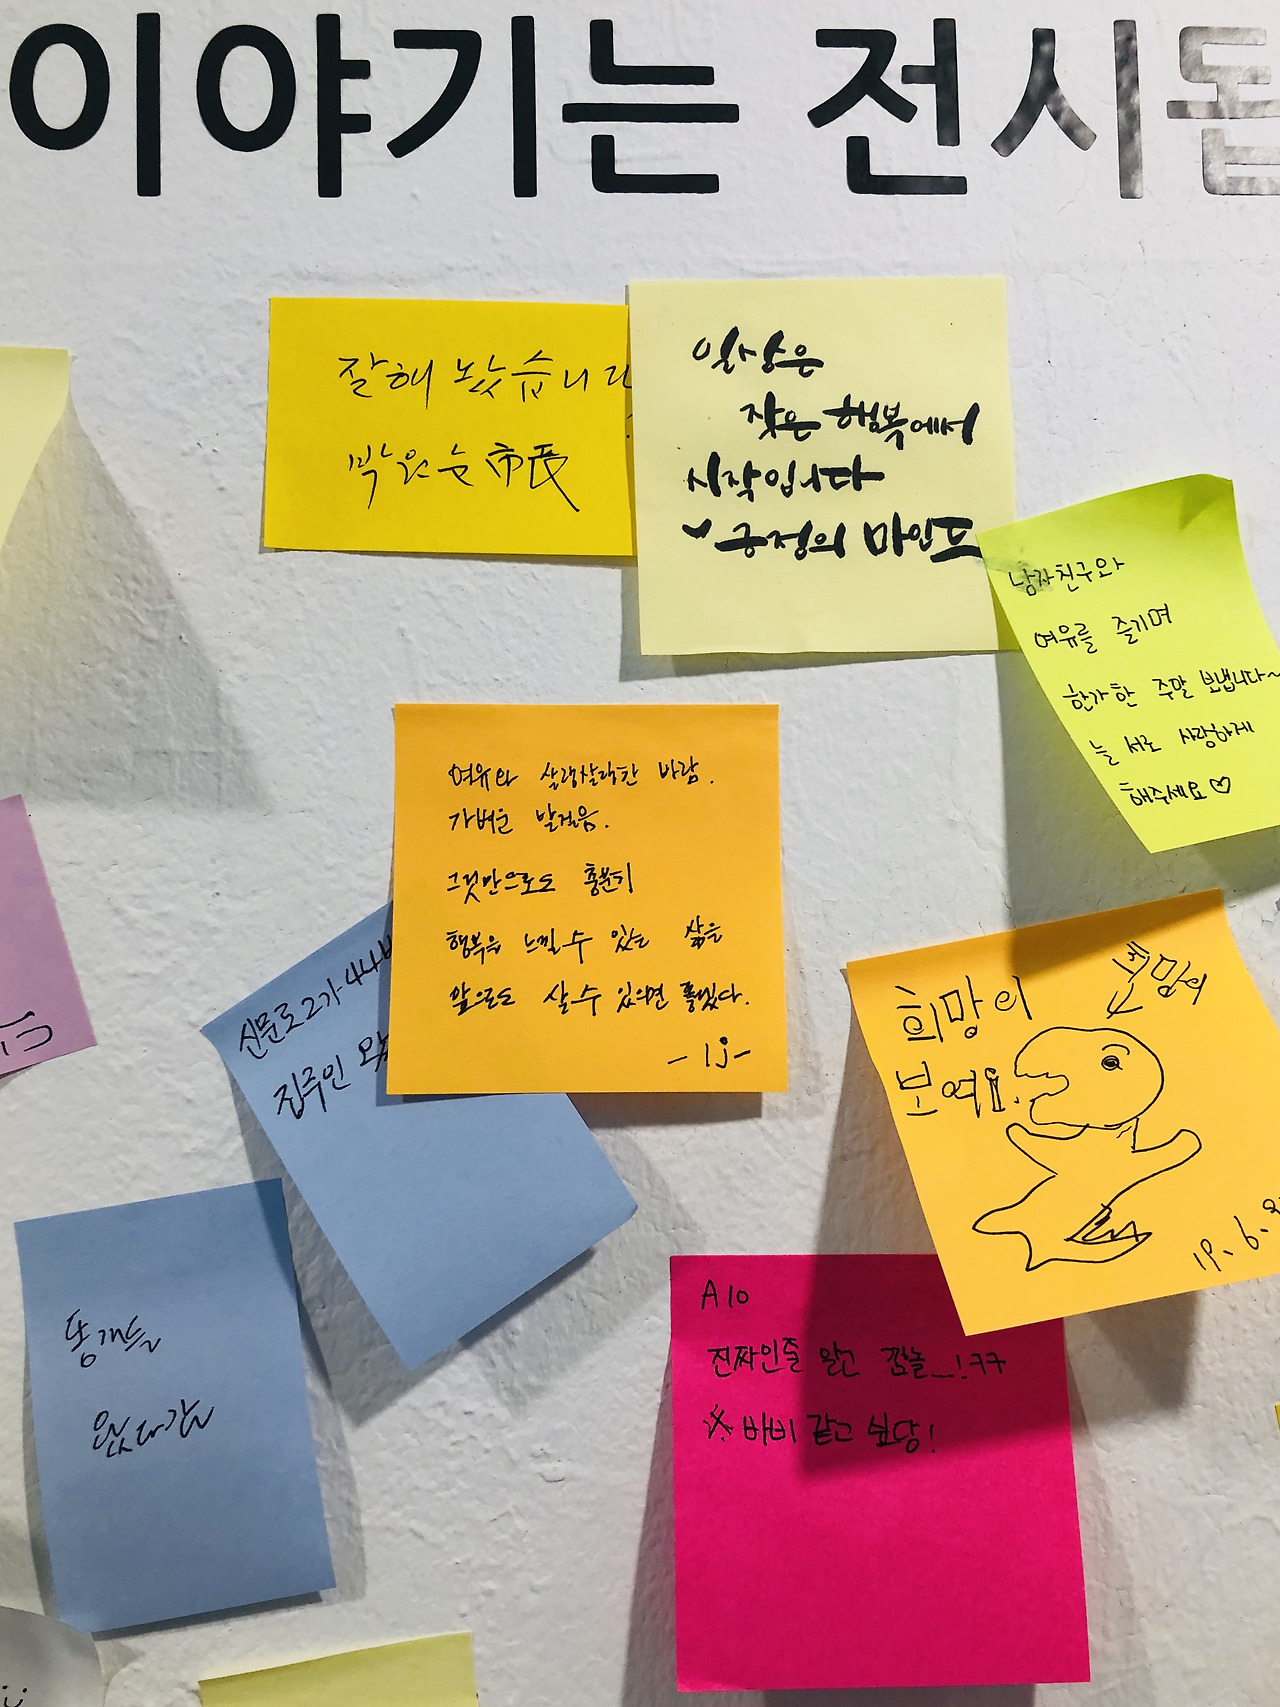 이야기는 전시됩
잘해 놨습니다
박원순 市民
일상은
작은 행복에서
시작입니다
긍정의 마인드
남자친구와
여유를 즐기며
한가한 주말 보냅니다~
늘 서로 사랑하게
해주세요♡
여유와 살랑살랑한 바람.
가벼운 발걸음.
그것만으로도 충분히
행복을 느낄 수 있는 삶을
앞으로도 살 수 있으면 좋겠다.
- IJ -
신문로2가 44
집주인
희망이
보여요.
19. 6.
똥개들
왔다감
A10
진짜인줄 알고 깜놀_!ㅋㅋ
※ 바비 같고